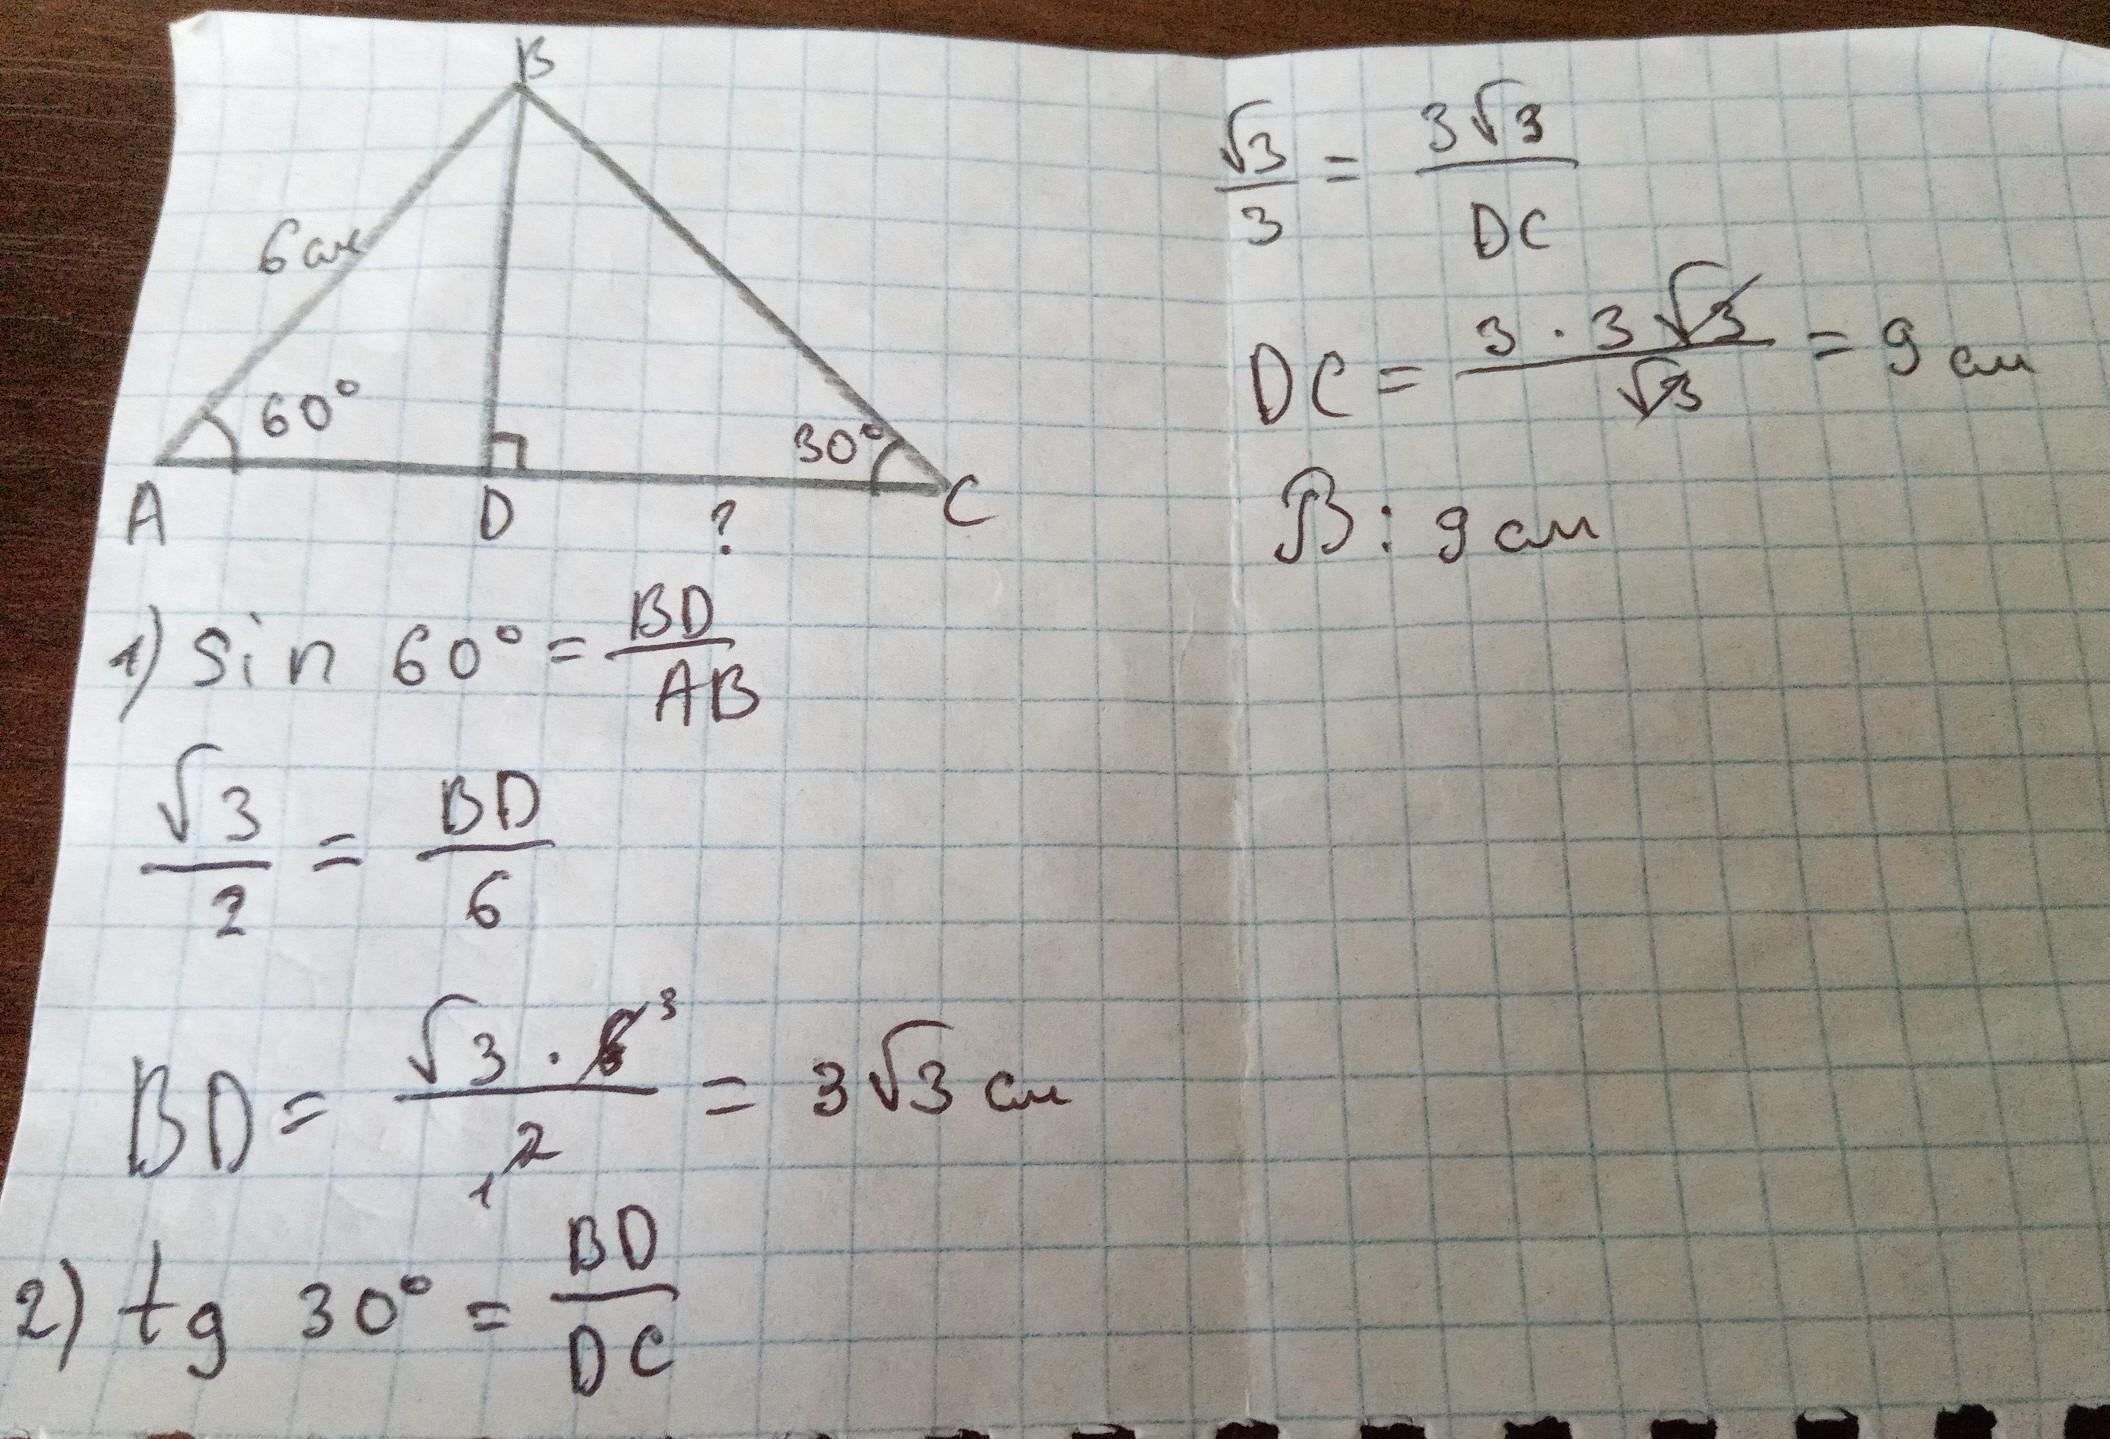 B
6 см
60°
30°
A D ? C
1) sin 60° = BD/AB
√3/2 = BD/6
BD = √3 · 6 3 / 1 2 = 3√3 см
2) tg 30° = BD/DC
√3/3 = 3√3/DC
DC = 3 · 3√3/√3 = 9 см
В: 9 см